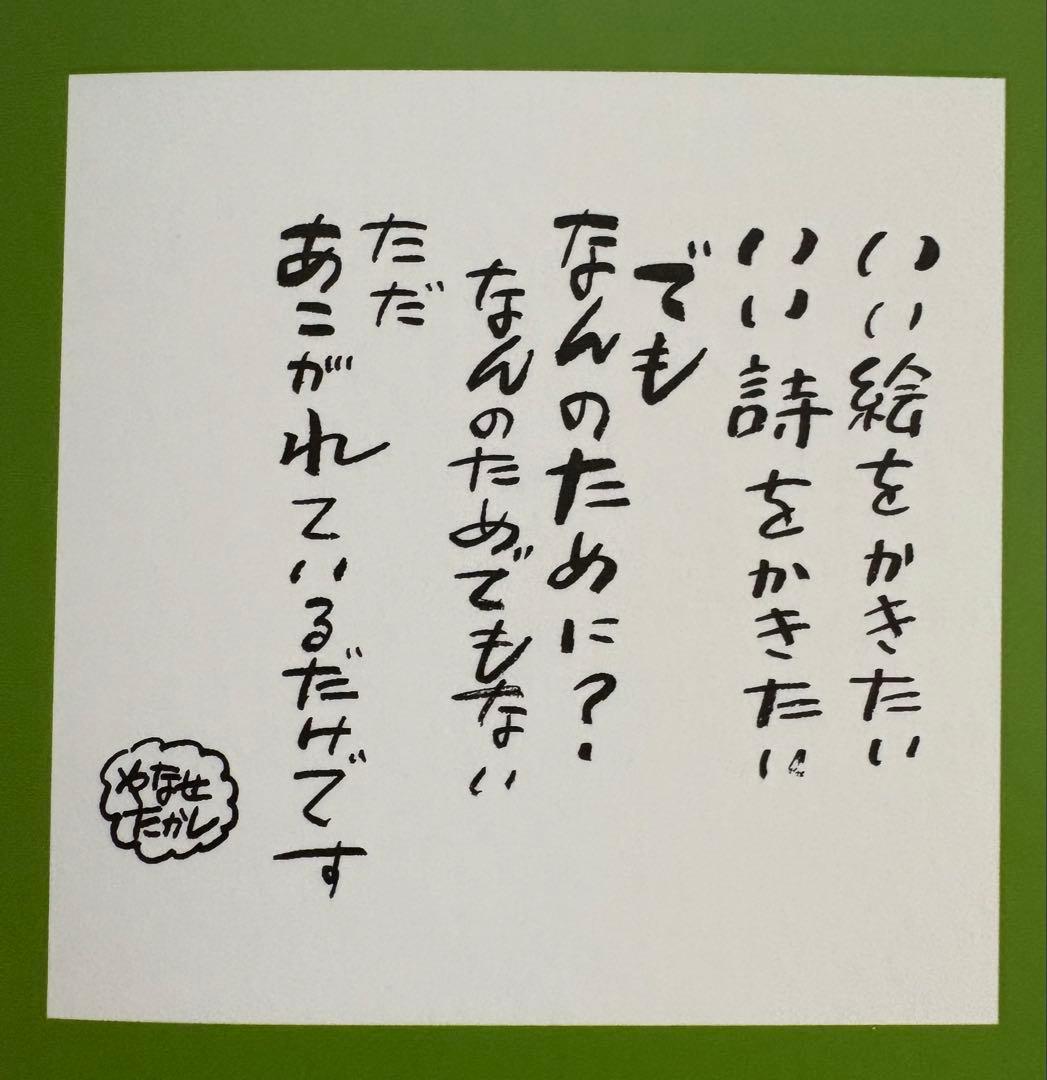 いい絵をかきたい
いい詩をかきたい
でも
なんのために?
なんのためでもない
ただ
あこがれているだけです
やなせ
たかし